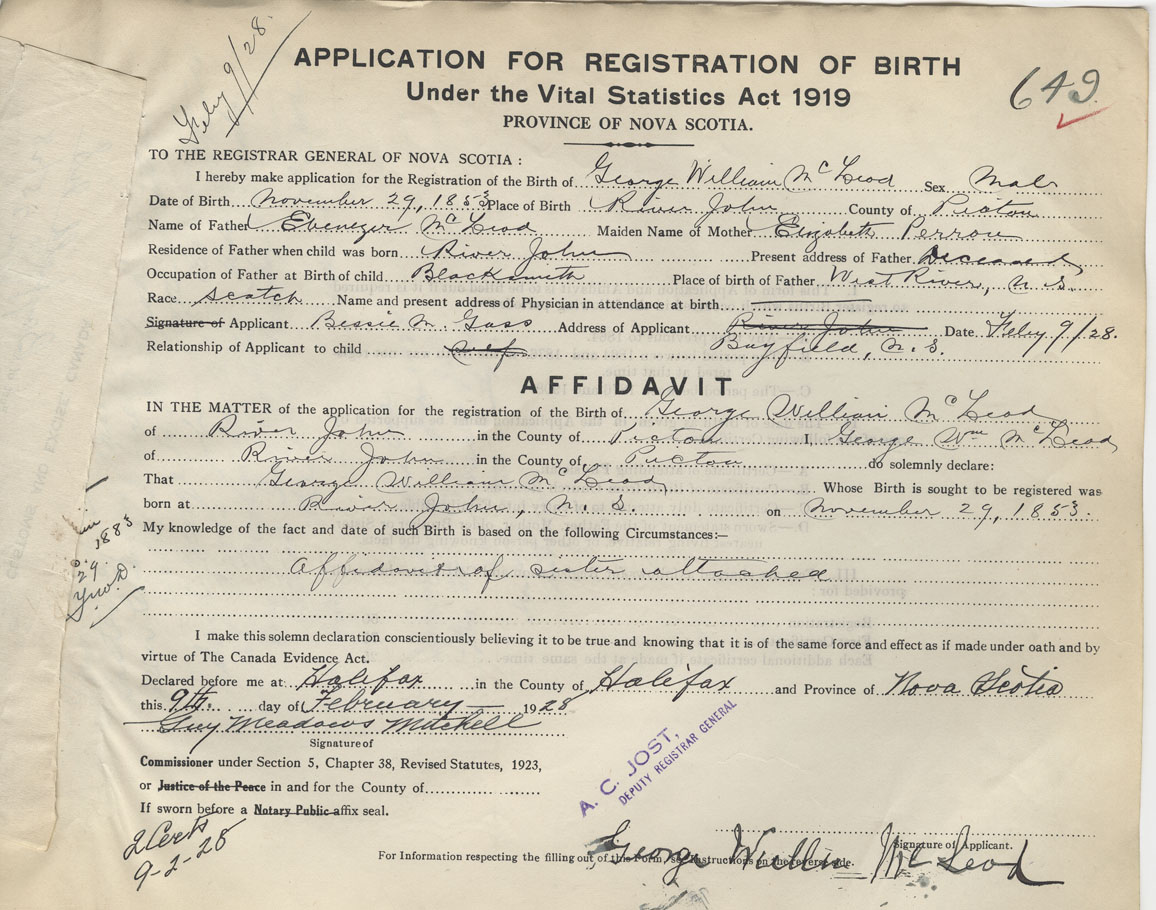 Feby 9/28.
APPLICATION FOR REGISTRATION OF BIRTH
Under the Vital Statistics Act 1919
PROVINCE OF NOVA SCOTIA.
649
TO THE REGISTRAR GENERAL OF NOVA SCOTIA :
I hereby make application for the Registration of the Birth of George William McLeod Sex Male
Date of Birth November 29, 1853 Place of Birth River John County of Pictou
Name of Father Ebenezer McLeod Maiden Name of Mother Elizabeth Perrou
Residence of Father when child was born River John Present address of Father Deceased
Occupation of Father at Birth of child Blacksmith Place of birth of Father West River, N. S.
Race Scotch Name and present address of Physician in attendance at birth
Signature of Applicant Bessie M. Gass Address of Applicant River John Date Feby 9/28.
Relationship of Applicant to child self Bayfield, N. S.
AFFIDAVIT
IN THE MATTER of the application for the registration of the Birth of George William McLeod
of River John in the County of Pictou I, George Wm McLeod
of River John in the County of Pictou do solemnly declare:
That George William McLeod Whose Birth is sought to be registered was
born at River John, N. S. on November 29, 1853.
My knowledge of the fact and date of such Birth is based on the following Circumstances:—
Affidavit of sister attached
I make this solemn declaration conscientiously believing it to be true and knowing that it is of the same force and effect as if made under oath and by
virtue of The Canada Evidence Act.
Declared before me at Halifax in the County of Halifax and Province of Nova Scotia
this 9th day of February 1928
Guy Meadows Mitchell
Signature of
Commissioner under Section 5, Chapter 38, Revised Statutes, 1923,
or Justice of the Peace in and for the County of
If sworn before a Notary Public affix seal.
A. C. JOST,
DEPUTY REGISTRAR GENERAL
2 Certs
9-2-28
Signature of Applicant.
George William McLeod
For Information respecting the filling out of this Form, see Instructions on the reverse side.